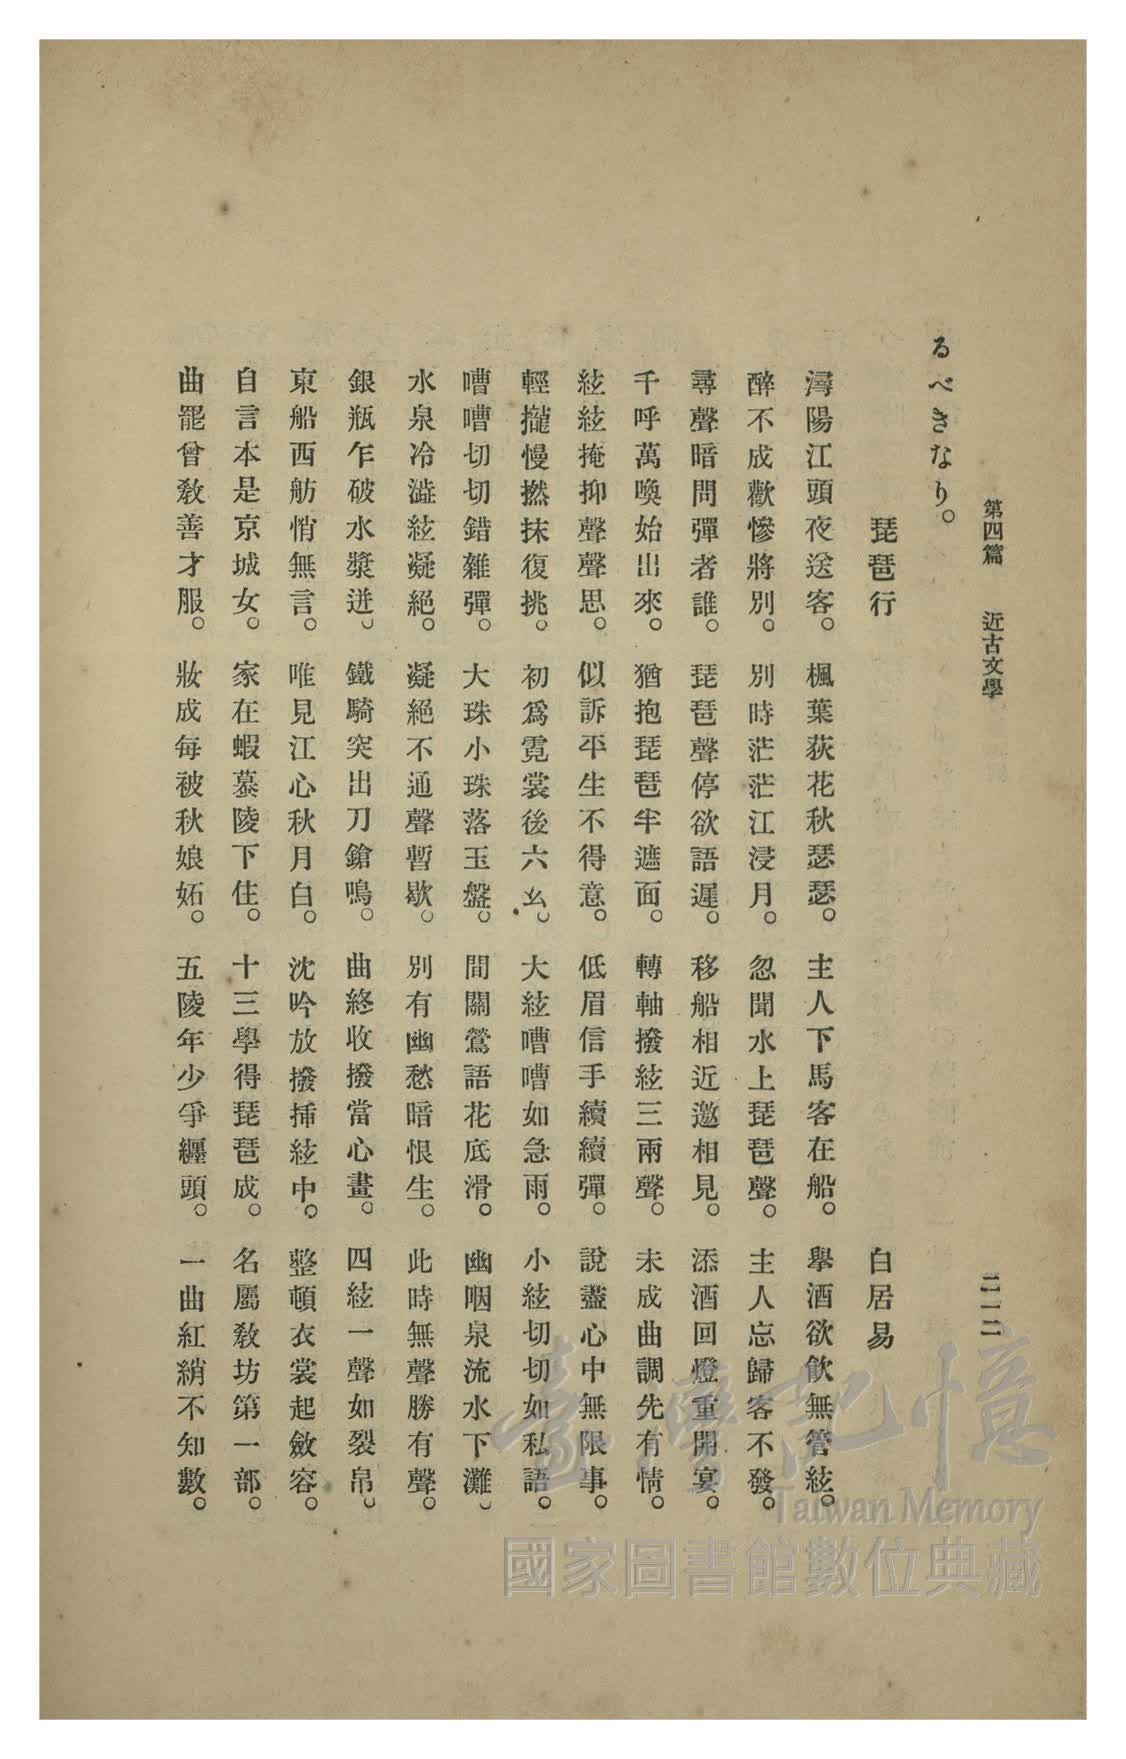 第四篇　近古文學　二一二
るべきなり。
琵琶行　白居易
潯陽江頭夜送客。楓葉荻花秋瑟瑟。主人下馬客在船。擧酒欲飮無管絃。
醉不成歡慘將別。別時茫茫江浸月。忽聞水上琵琶聲。主人忘歸客不發。
尋聲暗問彈者誰。琵琶聲停欲語遲。移船相近邀相見。添酒回燈重開宴。
千呼萬喚始出來。猶抱琵琶半遮面。轉軸撥絃三兩聲。未成曲調先有情。
絃絃掩抑聲聲思。似訴平生不得意。低眉信手續續彈。說盡心中無限事。
輕攏慢撚抹復挑。初爲霓裳後六幺。大絃嘈嘈如急雨。小絃切切如私語。
嘈嘈切切錯雜彈。大珠小珠落玉盤。間關鶯語花底滑。幽咽泉流水下灘。
水泉冷澁絃凝絕。凝絕不通聲暫歇。別有幽愁暗恨生。此時無聲勝有聲。
銀瓶乍破水漿迸。鐵騎突出刀鎗鳴。曲終收撥當心畫。四絃一聲如裂帛。
東船西舫悄無言。唯見江心秋月白。沈吟放撥揷絃中。整頓衣裳起斂容。
自言本是京城女。家在蝦蟇陵下住。十三學得琵琶成。名屬敎坊第一部。
曲罷曾敎善才服。妝成每被秋娘妬。五陵年少爭纒頭。一曲紅綃不知數。
臺灣記憶
Taiwan Memory
國家圖書館數位典藏